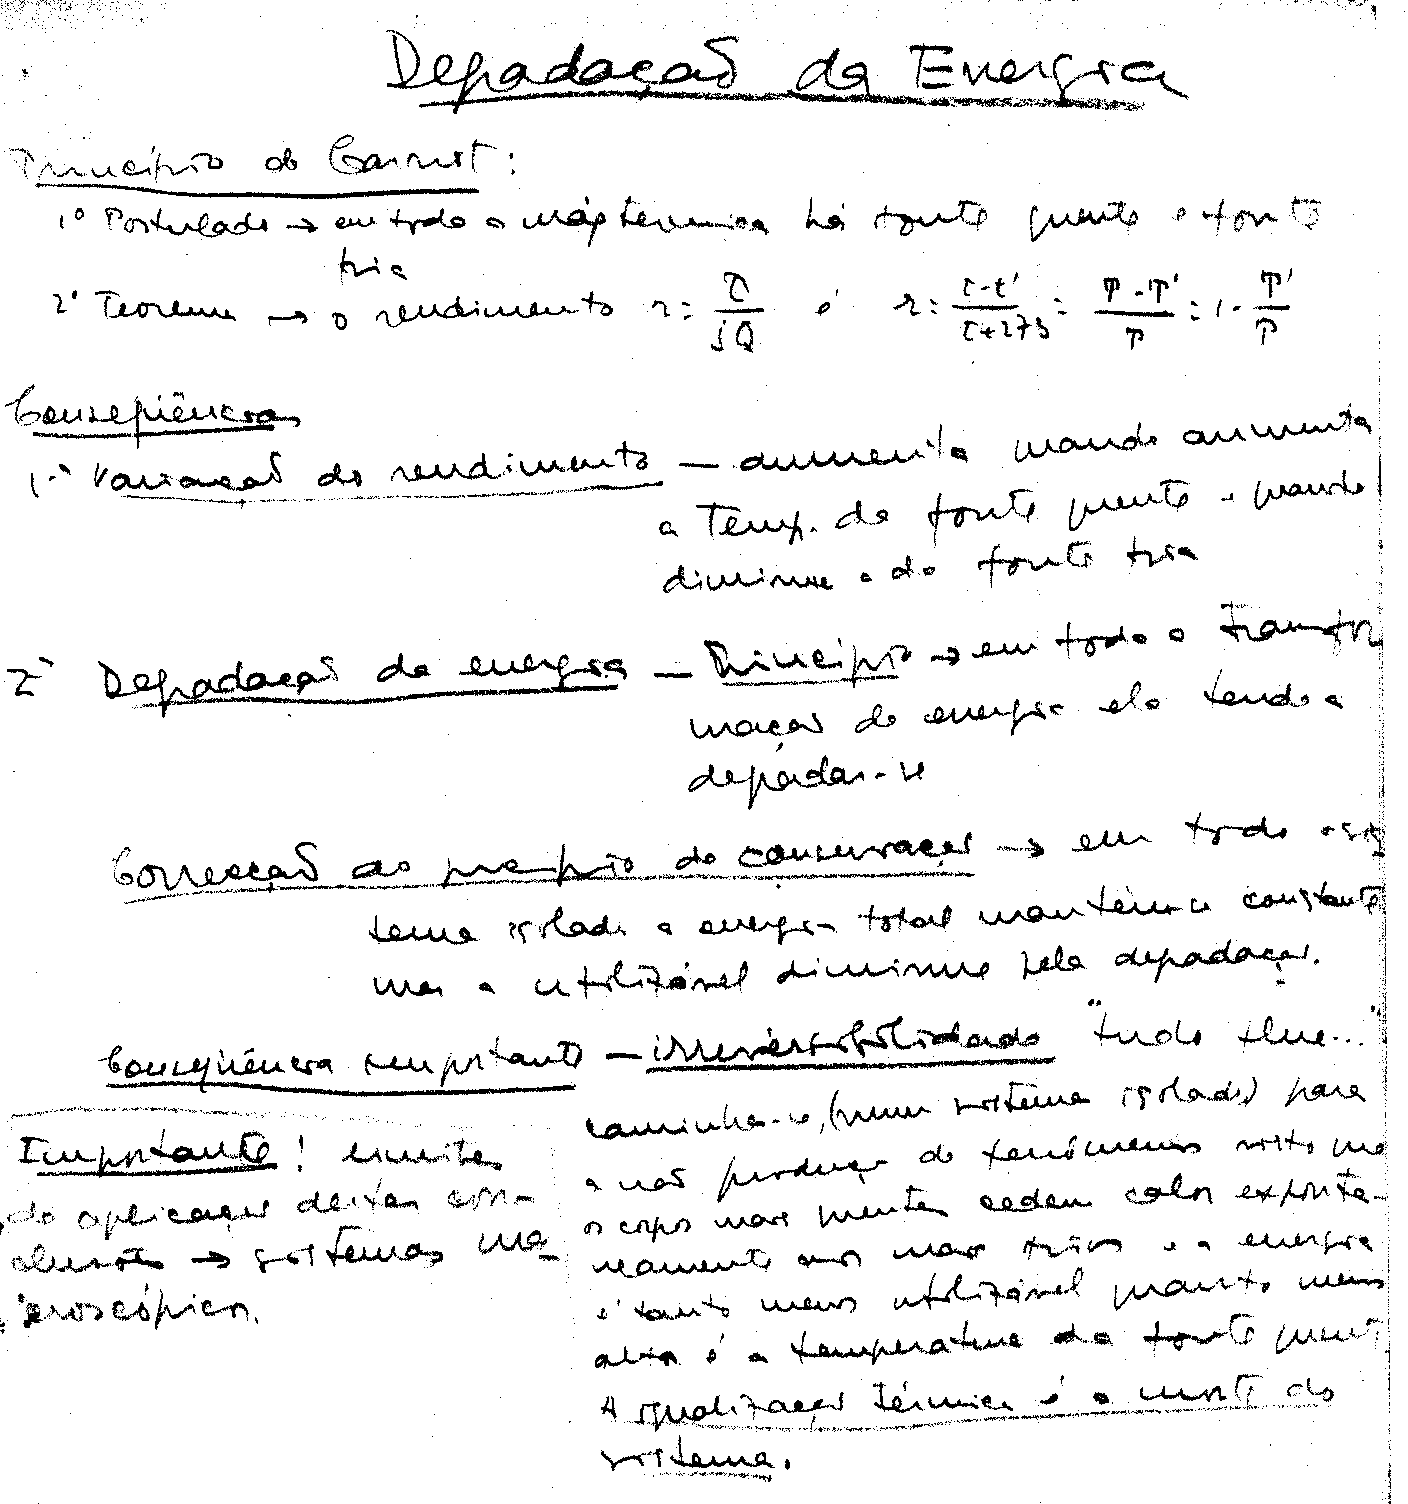 Degradação da Energia
Princípio de Carnot:
1º Postulado → em toda a máq térmica há fonte quente e fonte
fria
2º Teorema → o rendimento r = τ/jQ é r = t-t'/t+273 = T-T'/T = 1 - T'/T
Conseqüência
1ª Variação do rendimento — aumenta quando aumenta
a temp. da fonte quente e quando
diminue a da fonte fria
2ª Degradação da energia — Princípio → em toda a transfor
mação de energia ela tende a
degradar-se
Correcção ao princípio da conservação → em todo o sis
tema isolado a energia total mantém-se constante
mas a utilizável diminue pela degradação.
Conseqüência importante — irreversibilidade "tudo flue..."
caminha-se, (num sistema isolado) para
a não produção de fenómenos visto que
os corpos mais quentes cedem calor espontâ-
neamente aos mais frios e a energia
é tanto menos utilizável quanto menos
alta é a temperatura da fonte quent
A igualização térmica é a morte do
sistema.
Importante! Limites
de aplicação destas con-
clusões → sistemas ma
croscópicos.